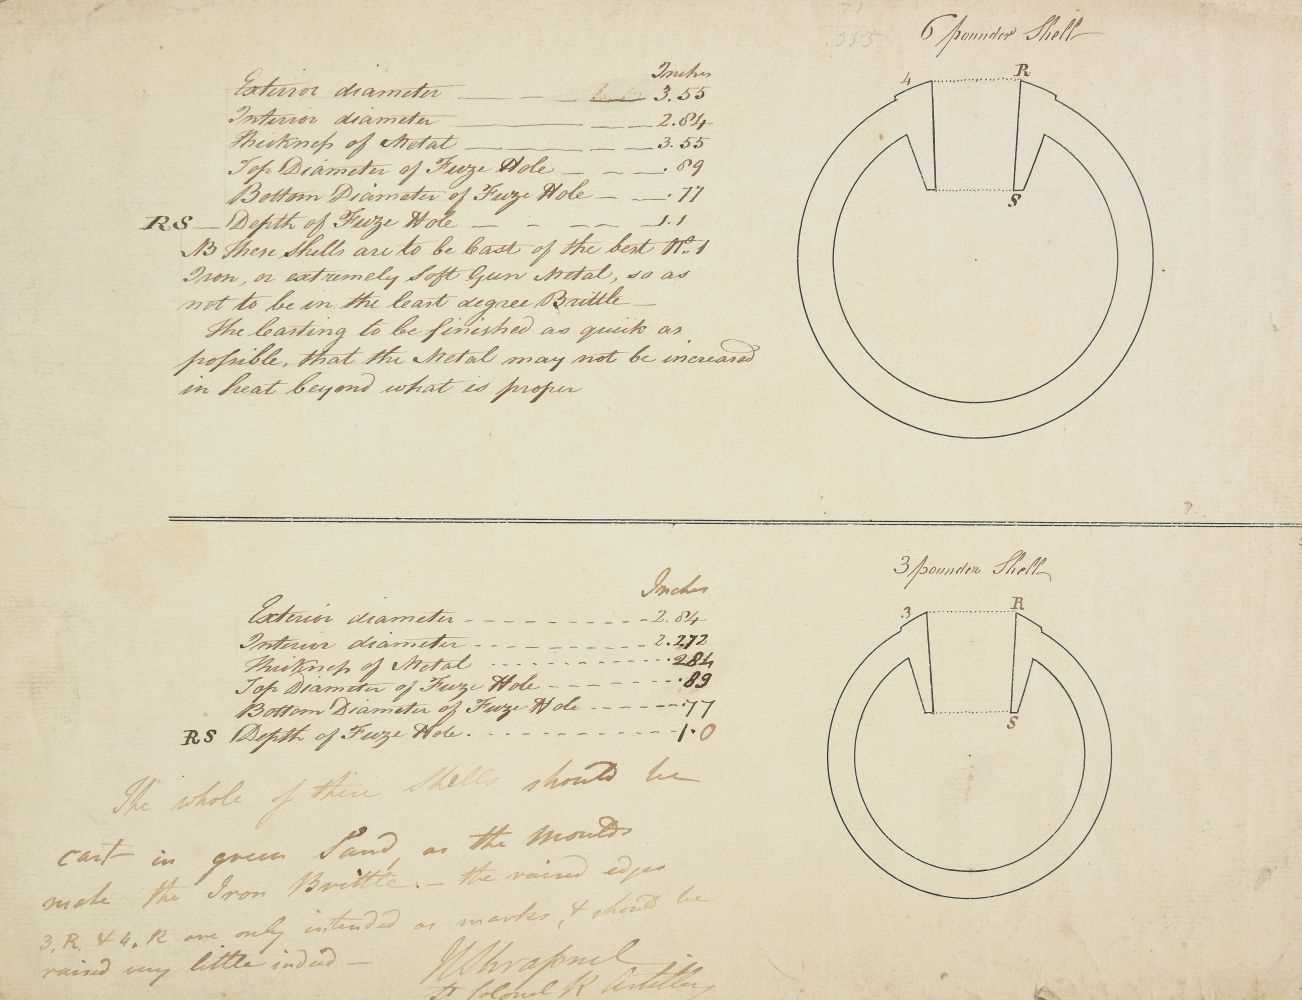 355
6 pounder Shell
Inches
Exterior diameter 3.55
Interior diameter 2.84
Thickness of Metal 3.55
Top Diameter of Fuze Hole .89
Bottom Diameter of Fuze Hole .77
RS Depth of Fuze Hole 1.1
NB These Shells are to be Cast of the best No. 1
Iron, or extremely Soft Gun Metal, so as
not to be in the least degree Brittle
The Casting to be finished as quick as
possible, that the Metal may not be increased
in heat beyond what is proper
4 R
S
3 pounder Shell
Inches
Exterior diameter 2.84
Interior diameter 2.272
Thickness of Metal .284
Top Diameter of Fuze Hole .89
Bottom Diameter of Fuze Hole .77
RS Depth of Fuze Hole 1.0
3 R
S
The whole of these Shells should be
cast in green Sand, as the Moulds
make the Iron Brittle. — the raised edges
3. R. & 4. R are only intended as marks, & should be
raised very little indeed —
H Shrapnel
Lt Colonel R Artillery